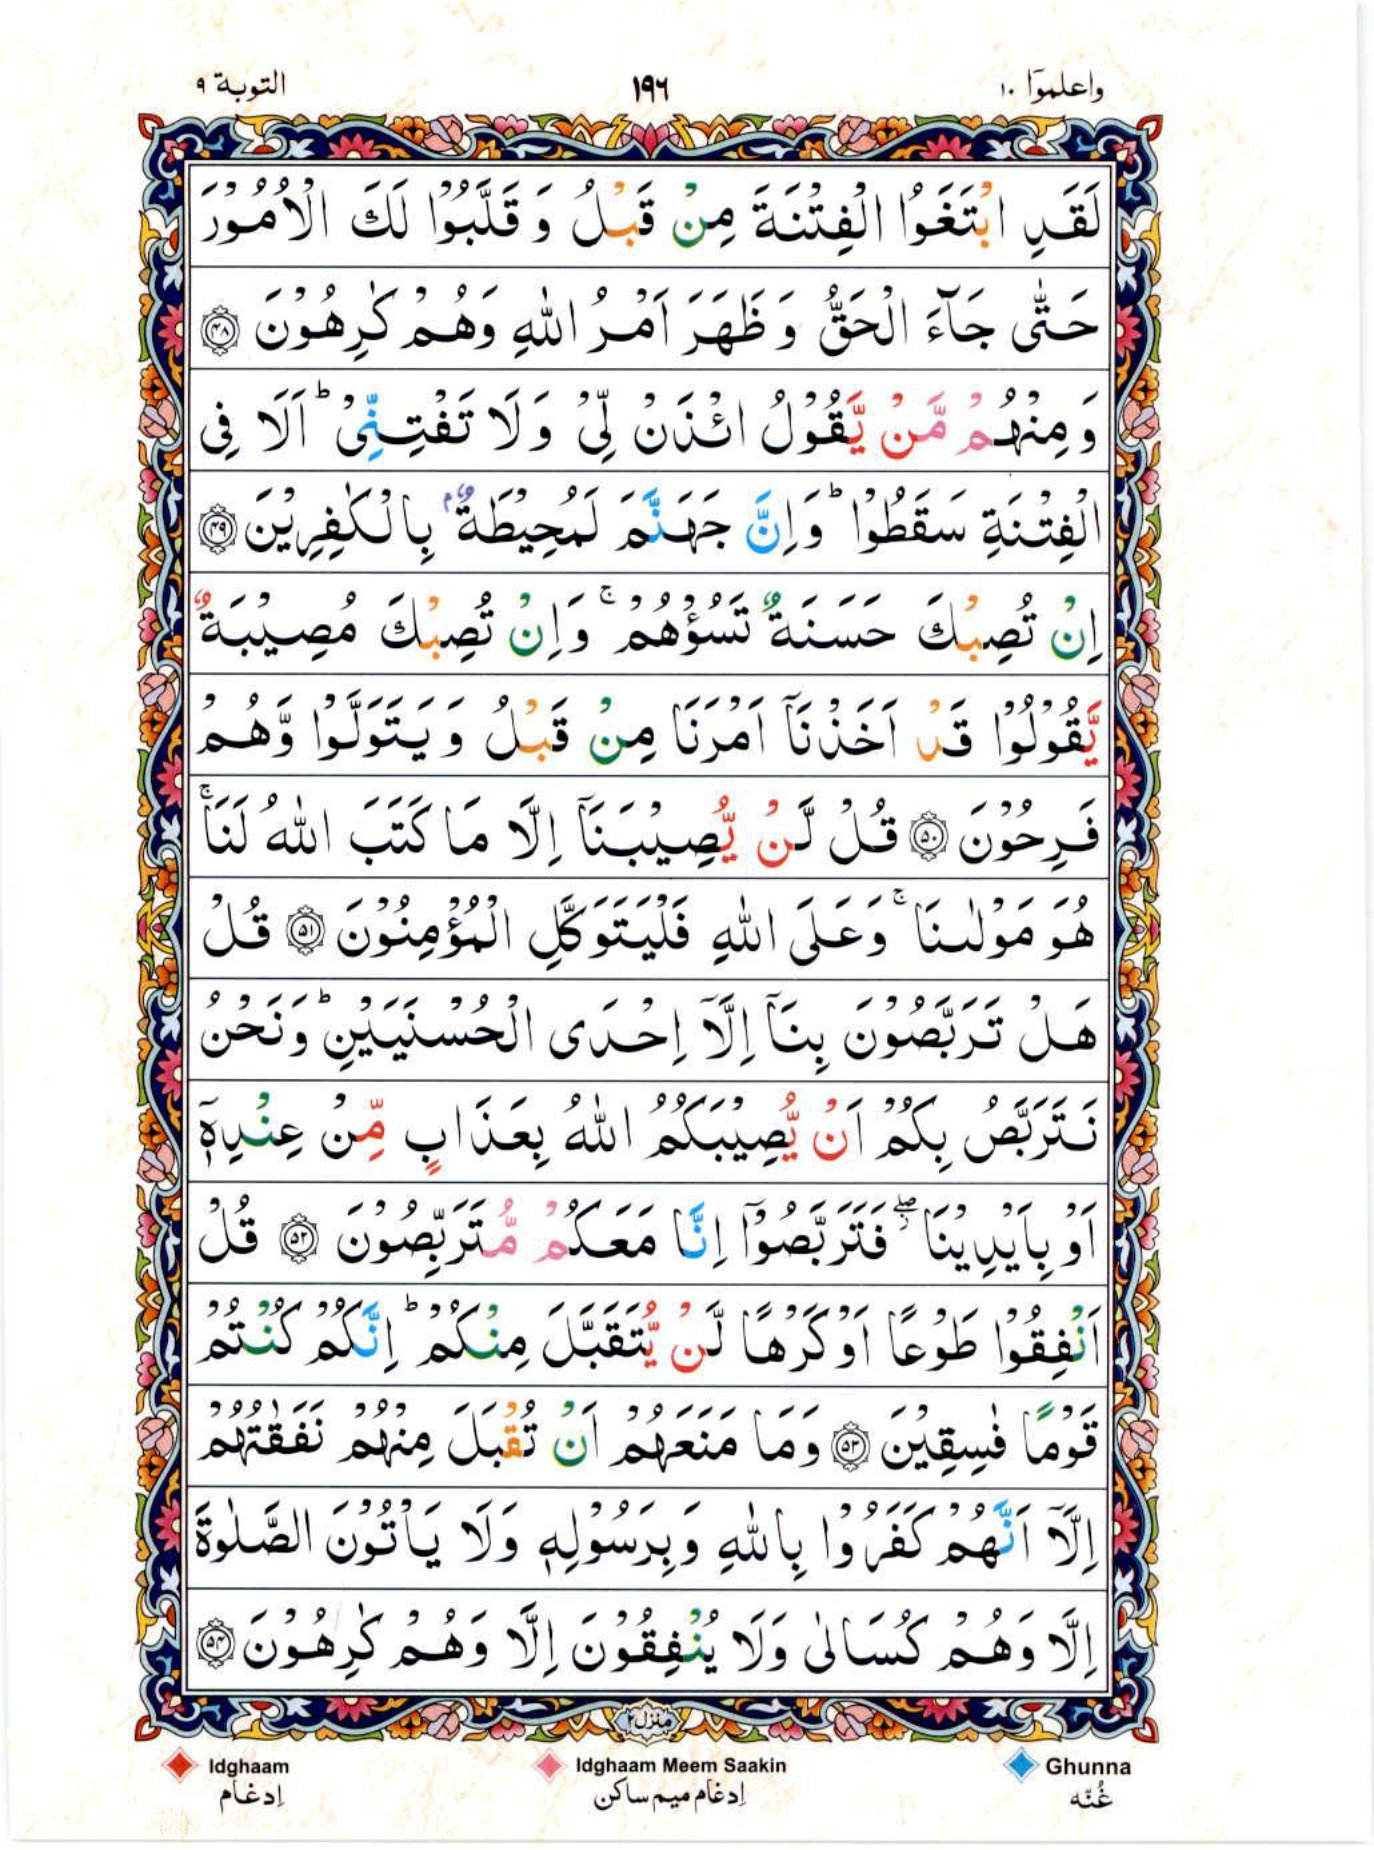 واعلموٓا ١٠
١٩٦
التوبة ٩
لَقَدِ ابْتَغَوُا الْفِتْنَةَ مِنْ قَبْلُ وَ قَلَّبُوْا لَكَ الْاُمُوْرَ
حَتّٰى جَآءَ الْحَقُّ وَ ظَهَرَ اَمْرُ اللّٰهِ وَهُمْ كٰرِهُوْنَ ﴿۴۸﴾
وَمِنْهُمْ مَّنْ يَّقُوْلُ ائْذَنْ لِّىْ وَلَا تَفْتِنِّىْ ؕ اَلَا فِى
الْفِتْنَةِ سَقَطُوْا ؕ وَاِنَّ جَهَنَّمَ لَمُحِيْطَةٌۢ بِالْكٰفِرِيْنَ ﴿۴۹﴾
اِنْ تُصِبْكَ حَسَنَةٌ تَسُؤْهُمْ ۚ وَاِنْ تُصِبْكَ مُصِيْبَةٌ
يَّقُوْلُوْا قَدْ اَخَذْنَاۤ اَمْرَنَا مِنْ قَبْلُ وَيَتَوَلَّوْا وَّهُمْ
فَرِحُوْنَ ﴿۵۰﴾ قُلْ لَّنْ يُّصِيْبَنَاۤ اِلَّا مَا كَتَبَ اللّٰهُ لَنَا ۚ
هُوَ مَوْلٰىنَا ۚ وَعَلَى اللّٰهِ فَلْيَتَوَكَّلِ الْمُؤْمِنُوْنَ ﴿۵۱﴾ قُلْ
هَلْ تَرَبَّصُوْنَ بِنَاۤ اِلَّاۤ اِحْدَى الْحُسْنَيَيْنِ ؕ وَنَحْنُ
نَتَرَبَّصُ بِكُمْ اَنْ يُّصِيْبَكُمُ اللّٰهُ بِعَذَابٍ مِّنْ عِنْدِهٖۤ
اَوْ بِاَيْدِيْنَا ۖ فَتَرَبَّصُوْۤا اِنَّا مَعَكُمْ مُّتَرَبِّصُوْنَ ﴿۵۲﴾ قُلْ
اَنْفِقُوْا طَوْعًا اَوْ كَرْهًا لَّنْ يُّتَقَبَّلَ مِنْكُمْ ؕ اِنَّكُمْ كُنْتُمْ
قَوْمًا فٰسِقِيْنَ ﴿۵۳﴾ وَمَا مَنَعَهُمْ اَنْ تُقْبَلَ مِنْهُمْ نَفَقٰتُهُمْ
اِلَّاۤ اَنَّهُمْ كَفَرُوْا بِاللّٰهِ وَبِرَسُوْلِهٖ وَلَا يَاْتُوْنَ الصَّلٰوةَ
اِلَّا وَهُمْ كُسَالٰى وَلَا يُنْفِقُوْنَ اِلَّا وَهُمْ كٰرِهُوْنَ ﴿۵۴﴾
منزل ٢
Idghaam Idghaam Meem Saakin Ghunna
إدغام إدغام ميم ساكن غُنّه